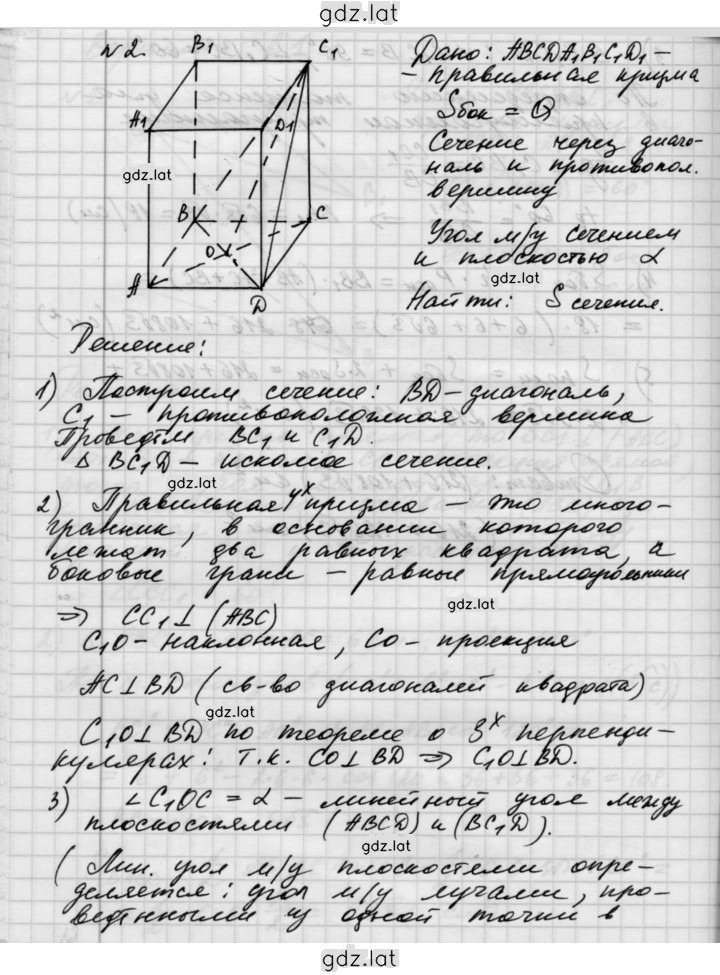 gdz.lat
№2.
B₁
C₁
A₁
D₁
gdz.lat
B
C
O
A
D
Дано: ABCDA₁B₁C₁D₁ –
– правильная призма
Sбок = Q
gdz.lat
Сечение через диаго-
наль и противопол.
вершину
Угол м/у сечением
и плоскостью α
gdz.lat
Найти: S сечения.
Решение:
1) Построим сечение: BD – диагональ,
C₁ – противоположная вершина
gdz.lat
Проведём BC₁ и C₁D.
Δ BC₁D – искомое сечение.
2) Правильная 4ˣ призма – это много-
гранник, в основании которого
лежат два равных квадрата, а
боковые грани – равные прямоугольники
gdz.lat
⇒ CC₁⊥(ABC)
C₁O – наклонная, CO – проекция
AC⊥BD (св-во диагоналей квадрата)
gdz.lat
C₁O⊥BD по теореме о 3ˣ перпенди-
кулярах: т.к. CO⊥BD ⇒ C₁O⊥BD.
3) ∠C₁OC = α – линейный угол между
плоскостями (ABCD) и (BC₁D).
gdz.lat
(Лин. угол м/у плоскостями опре-
деляется: угол м/у лучами, про-
ведёнными из одной точки в
gdz.lat